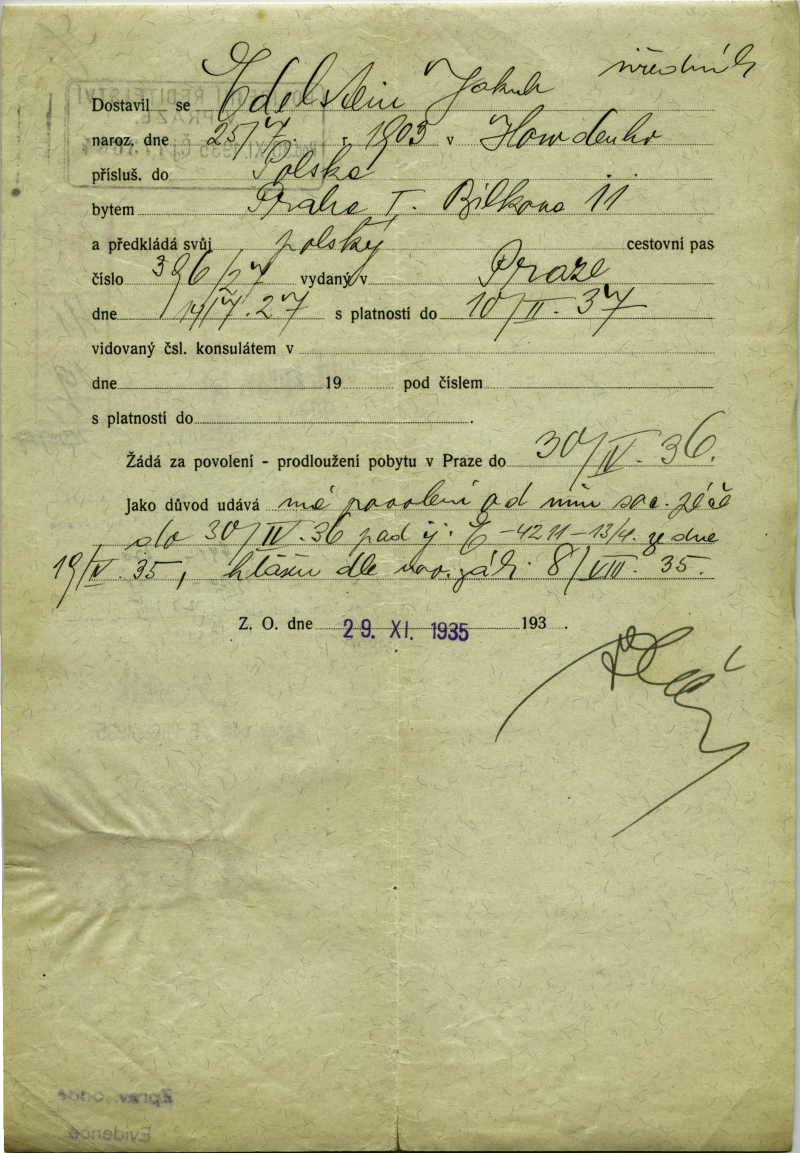 Dostavil se Edelstein Jakub úředník
naroz. dne 25/7. r. 1903 v Horodenko
přísluš. do Polska
bytem Praha I. Bílkova 11
a předkládá svůj polský cestovní pas
číslo 396/27 vydaný v Praze
dne 14/7.27 s platností do 10/II. 37
vidovaný čsl. konsulátem v
dne 19 pod číslem
s platností do .
Žádá za povolení - prodloužení pobytu v Praze do 30/IV. 36.
Jako důvod udává má povolení od min soc. péče
do 30/IV. 36 pod čj. E -4211-13/4. ze dne
19/V. 35, hlášen dle 8/VIII. 35.
Z. O. dne 29. XI. 1935 193 .
Zprav. odd
Evidence